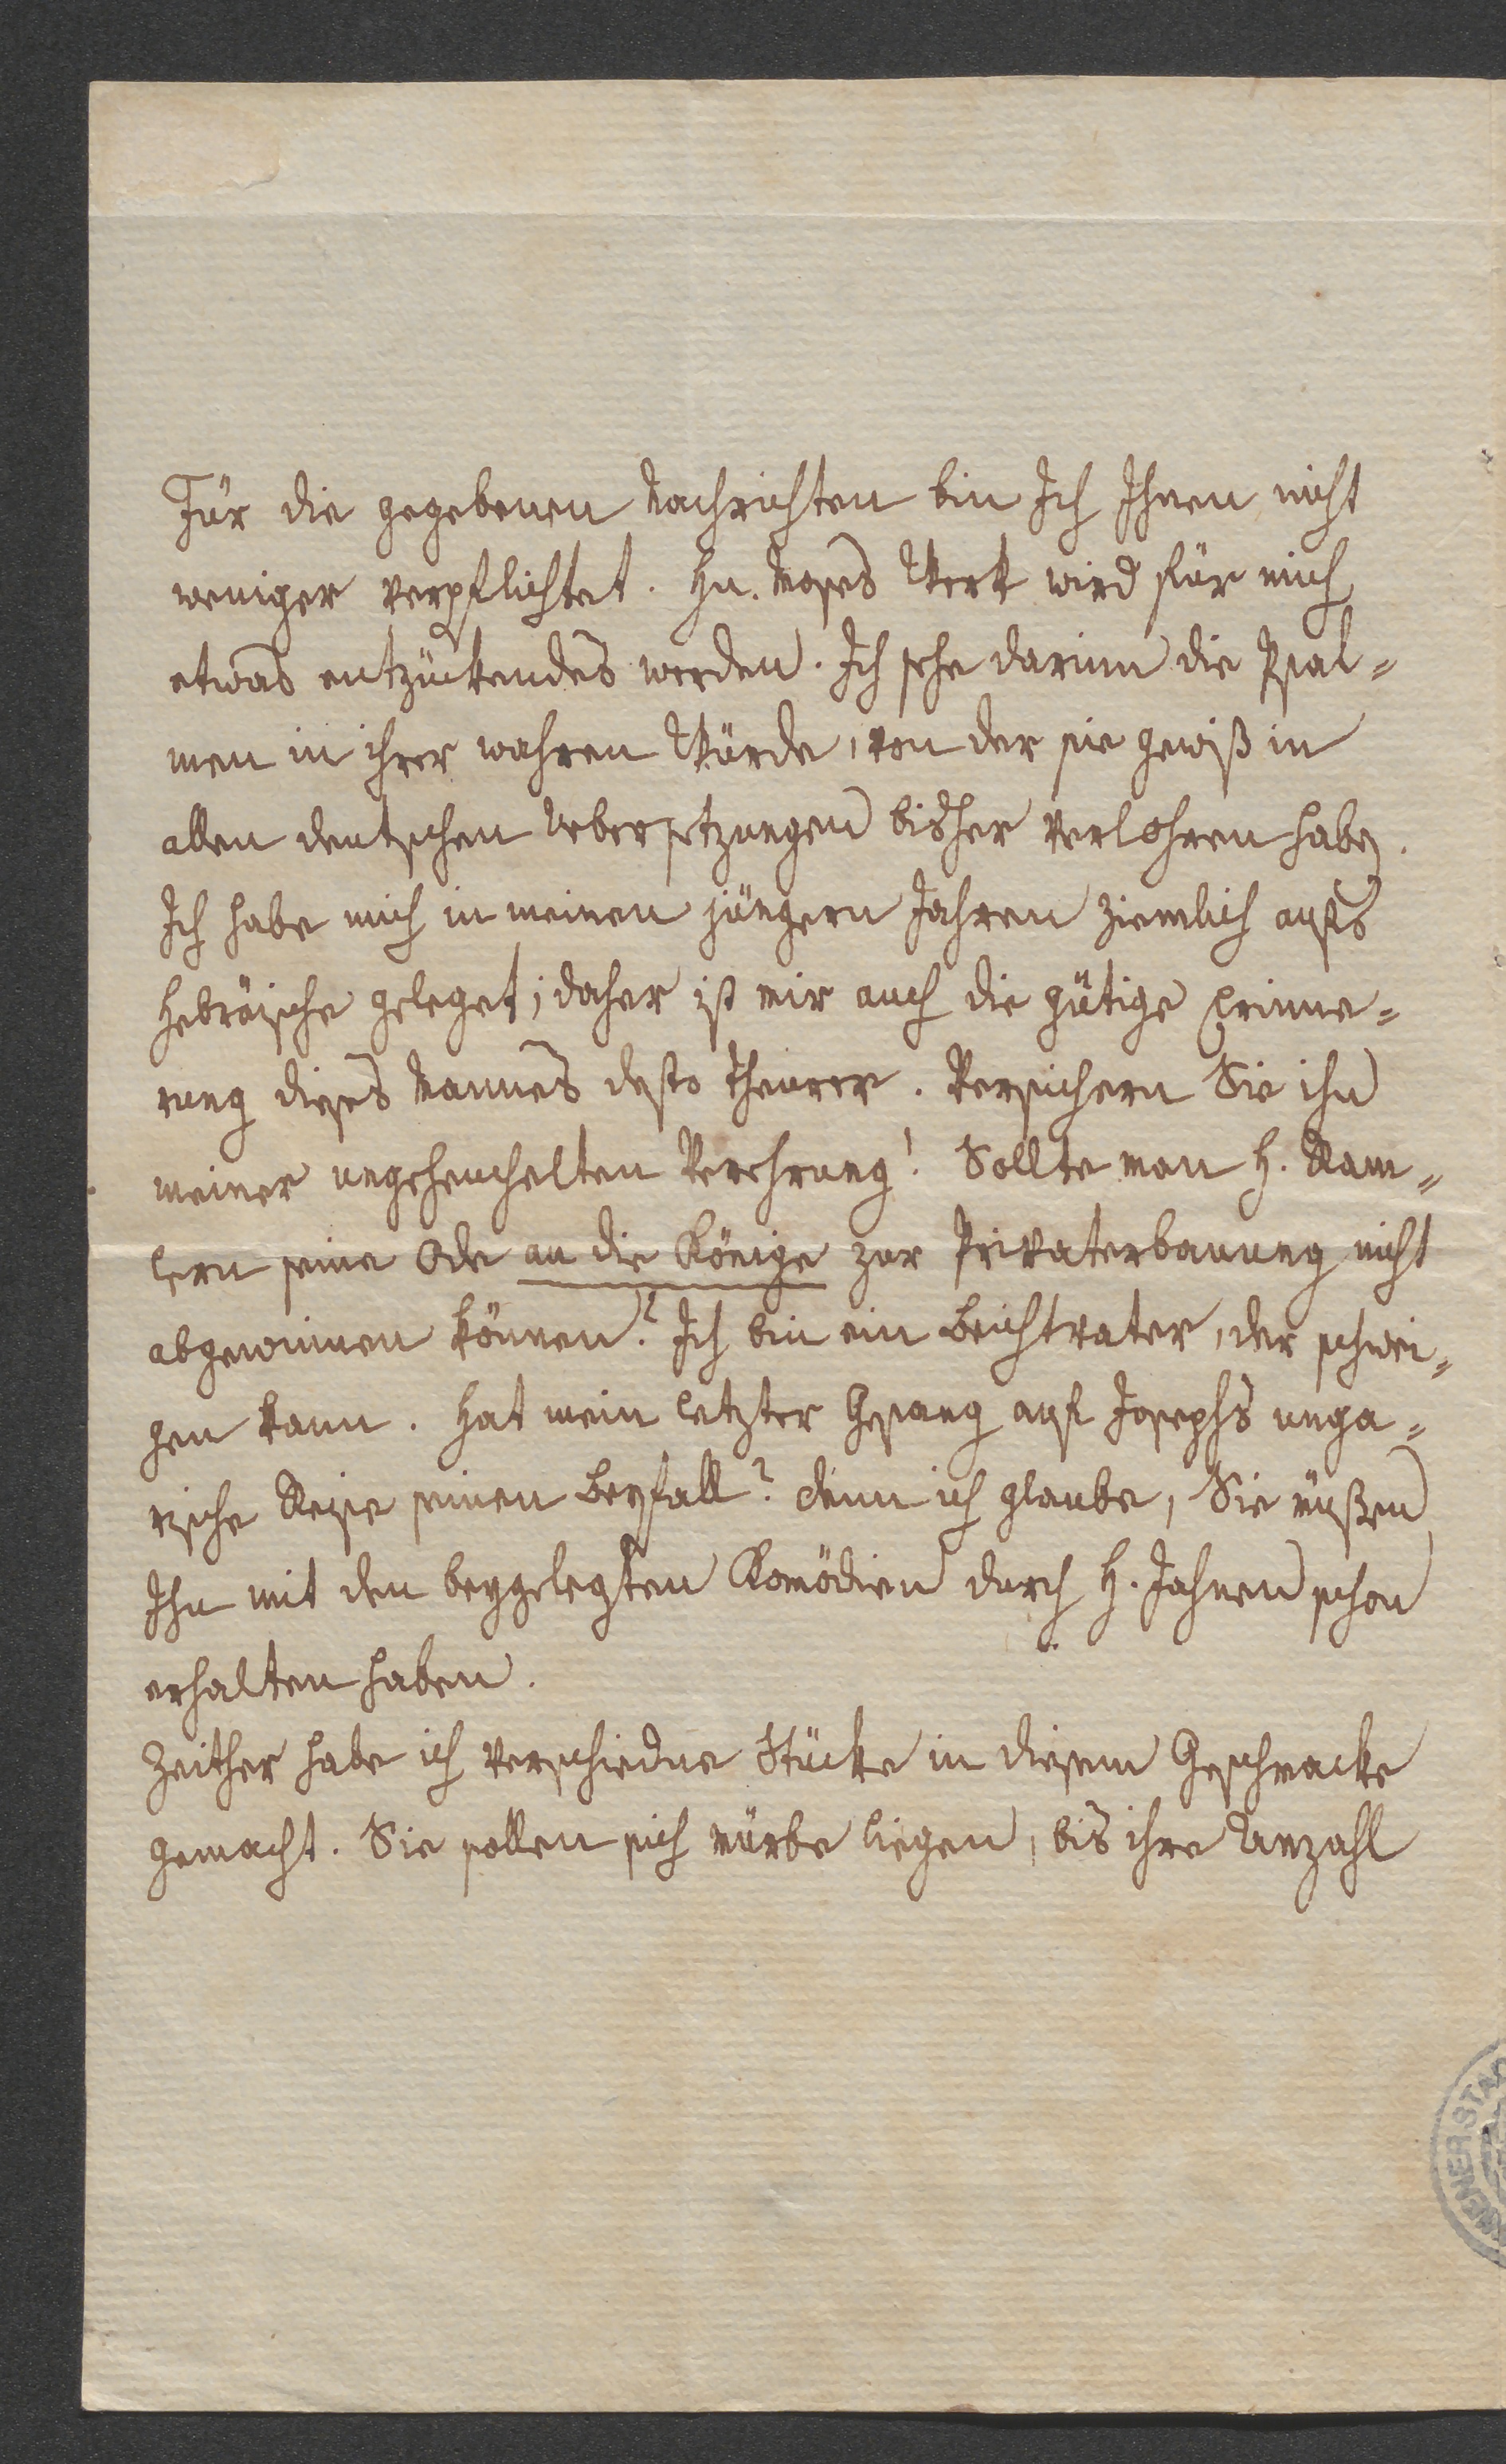 Für die gegebenen Nachrichten bin Ich Ihnen nicht
weniger verpflichtet. Hn. Moses Werk wird für mich
etwas entzückendes werden. Ich sehe darinn die Psal=
men in ihrer wahren Würde, von der sie gewiß in
allen deutschen Uebersetzungen bisher verlohren haben.
Ich habe mich in meinen jüngern Jahren ziemlich aufs
Hebräische geleget; daher ist mir auch die gütige Erinne=
rung dieses Mannes desto theurer. Versichern Sie ihn
meiner ungeheuchelten Verehrung! Sollte man H. Ram=
lern seine Ode an die Könige zur Privaterbauung nicht
abgewinnen können? Ich bin ein Beichtvater, der schwei=
gen kann. Hat mein letzter Gesang auf Josephs unga=
rische Reise seinen Beyfall? Denn ich glaube, Sie müßen
Ihn mit den beygelegten Komödien durch H. Jahnen schon
erhalten haben.
Zeither habe ich verschiedne Stücke in diesem Geschmacke
gemacht. Sie sollen sich mürbe liegen, bis ihre Anzahl